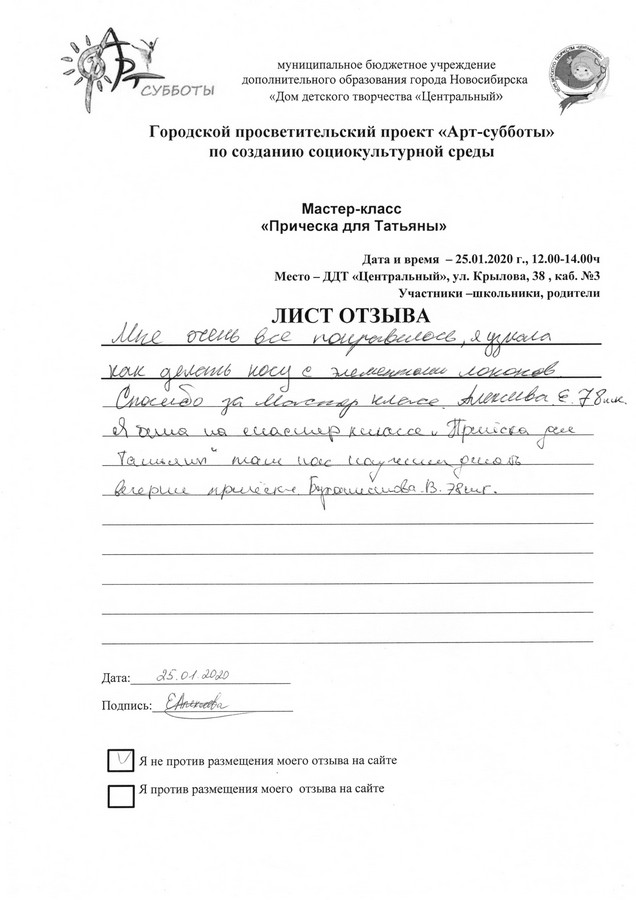 АРТ
СУББОТЫ
муниципальное бюджетное учреждение
дополнительного образования города Новосибирска
«Дом детского творчества «Центральный»
Городской просветительский проект «Арт-субботы»
по созданию социокультурной среды
Мастер-класс
«Прическа для Татьяны»
Дата и время – 25.01.2020 г., 12.00-14.00ч
Место – ДДТ «Центральный», ул. Крылова, 38 , каб. №3
Участники –школьники, родители
ЛИСТ ОТЗЫВА
Мне очень все понравилось, я узнала
как делать косу с элементами локонов.
Спасибо за Мастер класс. Алексеева Е. 78шк.
Я была на мастер классе „Прическа для
Татьяны" там нас научили делать
вечерние прически В. 78шк.
Дата: 25.01.2020
Подпись: ЕАлексеева
Я не против размещения моего отзыва на сайте
Я против размещения моего отзыва на сайте